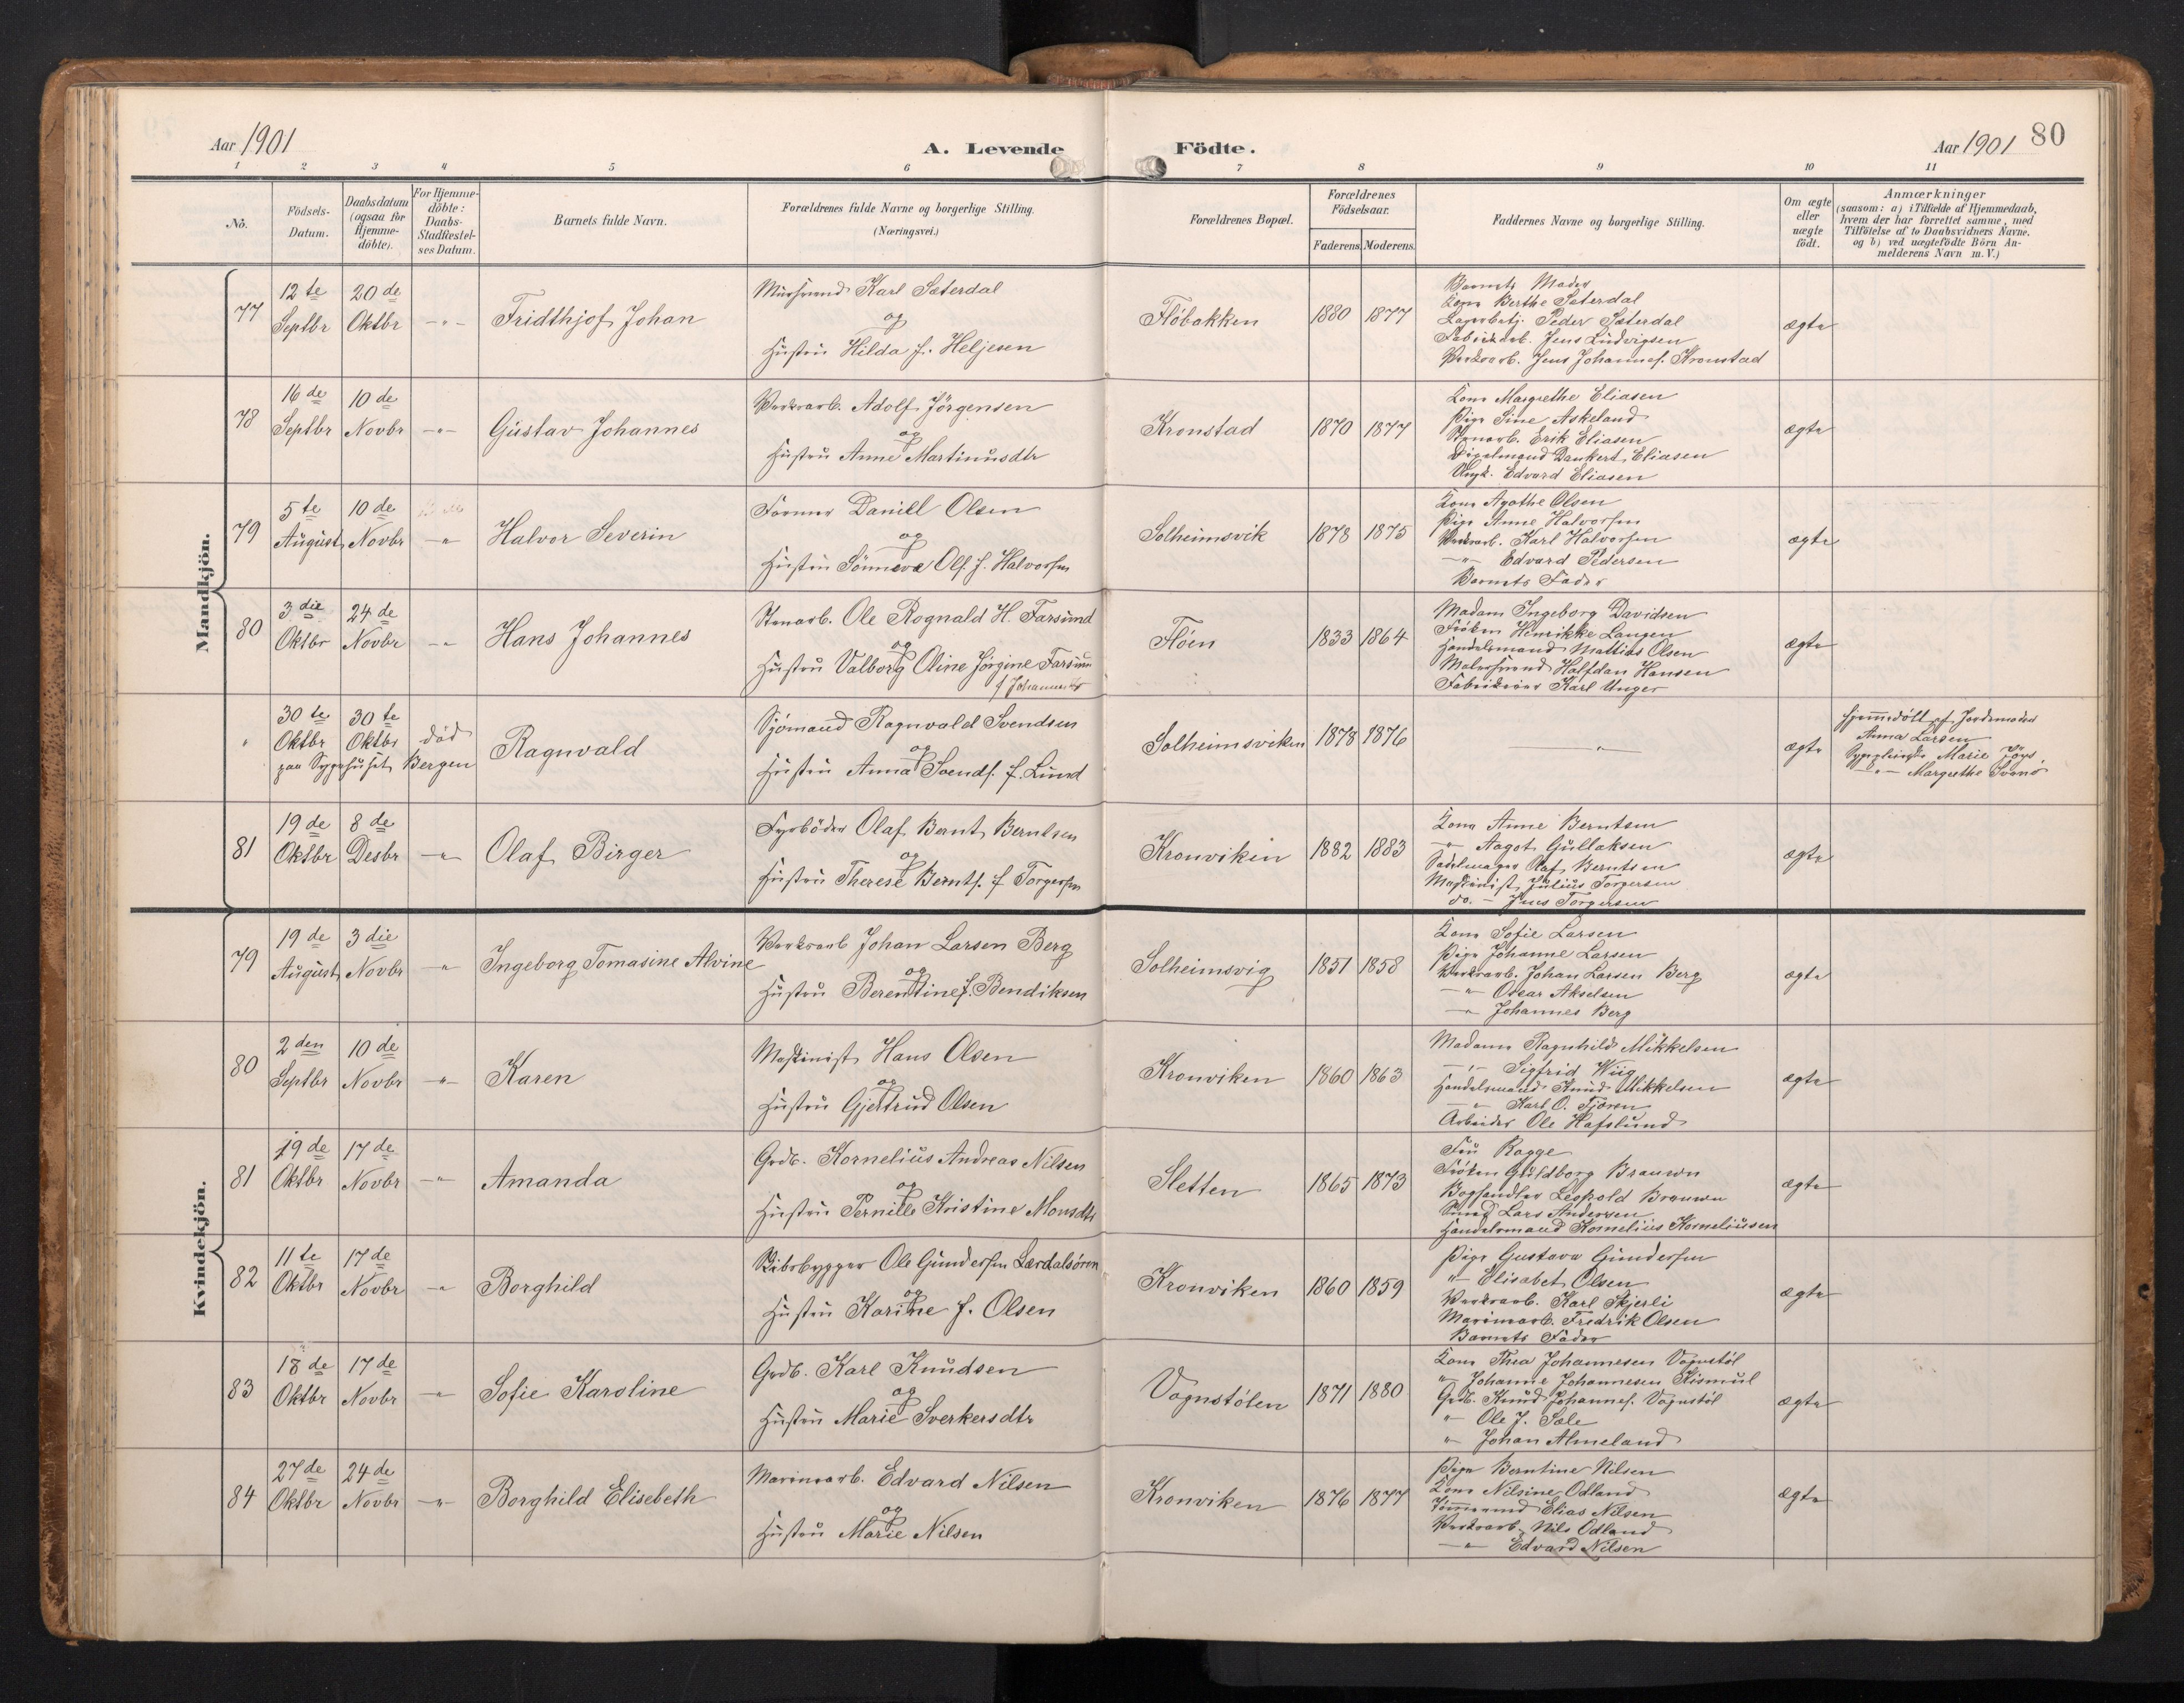 Aar 1901
A. Levende Födte.
Aar 1901 80
1 2 3 4 5 6 7 8 9 10 11
No.
Födsels-Datum.
Daabsdatum (ogsaa for Hjemme-döbte).
For Hjemme-döbte: Daabs-Stadfæstel-ses Datum.
Barnets fulde Navn.
Forældrenes fulde Navne og borgerlige Stilling.
(Næringsvei.)
Forældrenes Bopæl.
Forældrenes Födselsaar.
Faderens. Moderens.
Faddernes Navne og borgerlige Stilling.
Om ægte eller uægte födt.
Anmærkninger
(saasom: a) i Tilfælde af Hjemmedaab,
hvem der har forrettet samme, med
Tilföielse af to Daabsvidners Navne.
og b) ved uægtefödte Börn An-
melderens Navn m.V.)
Mandkjön.
77 12te Septbr 20de Oktbr -"- Fridthjof Johan
Murssvend Karl Sæterdal
og
Hustru Hilda f. Heljesen
Flöbakken 1880 1877
Barnets Moder
Kone Berthe Sæterdal
Lagerbetj. Peder Sæterdal
Fabrikarb. Jens Ludvigsen
Værksarb. Jens Johannes. Kronstad
ægte
78 16de Septbr 10de Novbr -"- Gustav Johannes
Værksarb. Adolf Jörgensen
og
Hustru Anne Martinusdtr
Kronstad 1870 1877
Kone Margrethe Eliasen
Pige Sine Askeland
Stenarb. Erik Eliasen
Dankert Eliasen
Ungk. Edvard Eliasen
ægte
79 5te August 10de Novbr -"- Halvor Severin
Former Daniel Olsen
og
Hustru Sönneva Ols. f. Halvorsen
Solheimsvik 1878 1875
Kone Agathe Olsen
Pige Anne Halvorsen
Værksarb. Karl Halvorsen
-"- Edvard Pedersen
Barnets Fader
ægte
80 3die Oktbr 24de Novbr -"- Hans Johannes
Stenarb. Ole Rognald H. Farsund
og
Hustru Valborg Oline Jörgine Farsund
f Johannesdtr
Flöen 1833 1864
Madam Ingeborg Davidsen
Fröken Henrikke Langen
Handelsmand Mattias Olsen
Malersvend Halfdan Hansen
Fabrikeier Karl Unger
ægte
" 30te Oktbr 30te Oktbr död
paa Sygehuset Bergen
Ragnvald
Sjömand Ragnvald Svendsen
og
Hustru Anna Svends. f. Lund
Solheimsviken 1878 1876
-"-
ægte
Hjemmedöbt af Jordemoder
Anna Larsen
Marie
-"- Margrethe
81 19de Oktbr 8de Desbr -"- Olaf Birger
Fyrböder Olaf Bernt Berntsen
og
Hustru Therese Bernts. f Torgersen
Kronviken 1882 1883
Kone Anne Berntsen
-"- Aagot Gullaksen
Sadelmager Olaf Berntsen
Maskinist Julius Torgersen
do. - Jens Torgersen
ægte
Kvindekjön.
79 19de August 3die Novbr -"- Ingeborg Tomasine Alvine
Værksarb Johan Larsen Berg
og
Hustru Berentine f. Bendiksen
Solheimsvig 1851 1858
Kone Sofie Larsen
Pige Johanne Larsen
Værksarb. Johan Larsen Berg
-"- Oscar Akselsen
-"- Johannes Berg
ægte
80 2den Septbr 10de Novbr -"- Karen
Maskinist Hans Olsen
og
Hustru Gjertrud Olsen
Kronviken 1860 1863
Madame Ragnhild Mikkelsen
-"- Sigfrid Wiig
Handelsmand Knud Mikkelsen
-"- Karl O. Tjoren
Arbeider Ole Hafslund
ægte
81 19de Oktbr 17de Novbr -"- Amanda
Grdb. Kornelius Andreas Nilsen
og
Hustru Pernille Kristine Monsdtr
Sletten 1865 1873
Fru Rogge
Fröken Guldborg Brauwn
Boghandler Leopold Brauwn
Smed Lars Andersen
Handelsmand Kornelius Korneliusen
ægte
82 11te Oktbr 17de Novbr -"- Borghild
Skibsbygger Ole Gundersen Lærdalsören
og
Hustru Karine f. Olsen
Kronviken 1860 1859
Pige Gustava Gundersen
"- Elisabet Olsen
Værksarb. Karl Skjerli
Marinearb. Fredrik Olsen
Barnets Fader
ægte
83 18de Oktbr 17de Novbr -"- Sofie Karoline
Grdb. Karl Knudsen
og
Hustru Marie Sverkersdtr
Vognstölen 1871 1880
Kone Thea Johannesen Vognstöl
"- Johanne Johannesen Kismul
Grdb. Knud Johannes. Vognstöl
"- Ole J. Sæle
"- Johan Almeland
ægte
84 27de Oktbr 24de Novbr -"- Borghild Elisebeth
Marinearb. Edvard Nilsen
og
Hustru Marie Nilsen
Kronviken 1876 1877
Pige Berntine Nilsen
Kone Nilsine Odland
Tömmermd Elias Nilsen
Værksarb. Nils Odland
-"- Edvard Nilsen
ægte